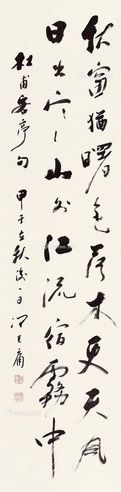 秋窗猶曙色落木更天風
日出寒山外江流宿霧中
杜甫客亭句 甲子立秋後一日 馮其庸